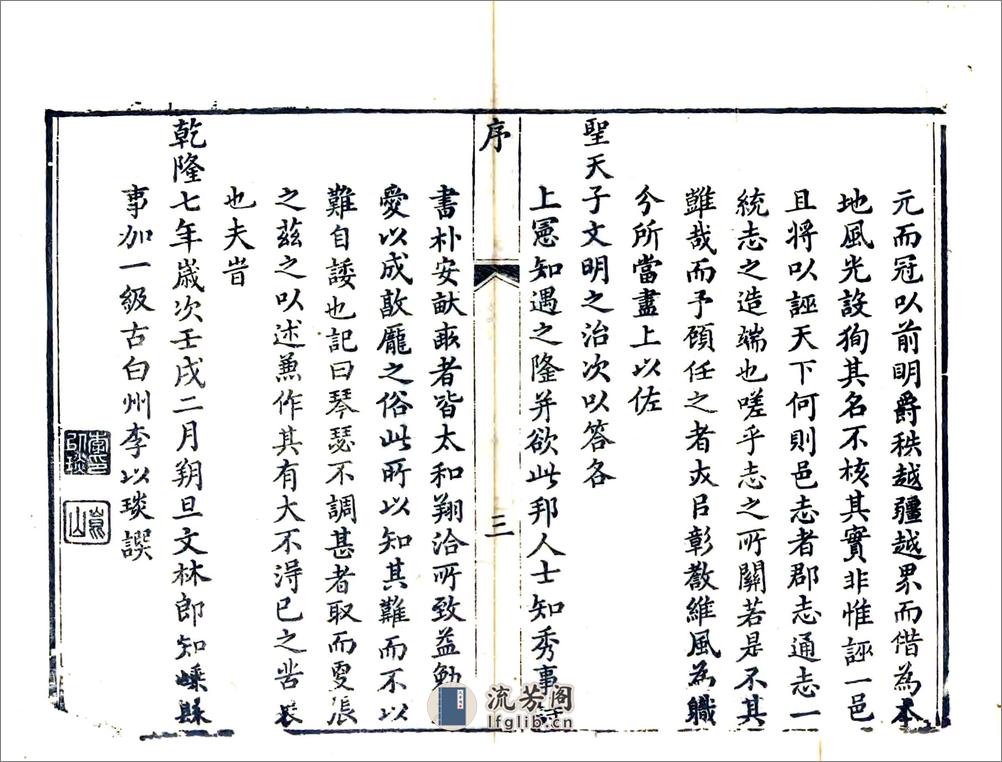 元而冠以前明爵秩越疆越界而借為本
地風光設狥其名不核其實非惟誣一邑
且將以誣天下何則邑志者郡志通志一
統志之造端也嗟乎志之所關若是不其
難哉而予顧任之者夫㠯彰教維風為職
分所當盡上以佐
聖天子文明之治次以答各
上憲知遇之隆并欲此邦人士知秀事詩
書朴安献畝者皆太和翔洽所致益勉
愛以成敦龐之俗此所以知其難而不以
難自諉也記曰琴瑟不調甚者取而更張
之茲之以述兼作其有大不得已之苦衷
也夫旹
乾隆七年歲次壬戌二月朔旦文林郎知嵊縣
事加一級古白州李以琰譔
序
三
李以琰印
流芳阁
lfglib.cn